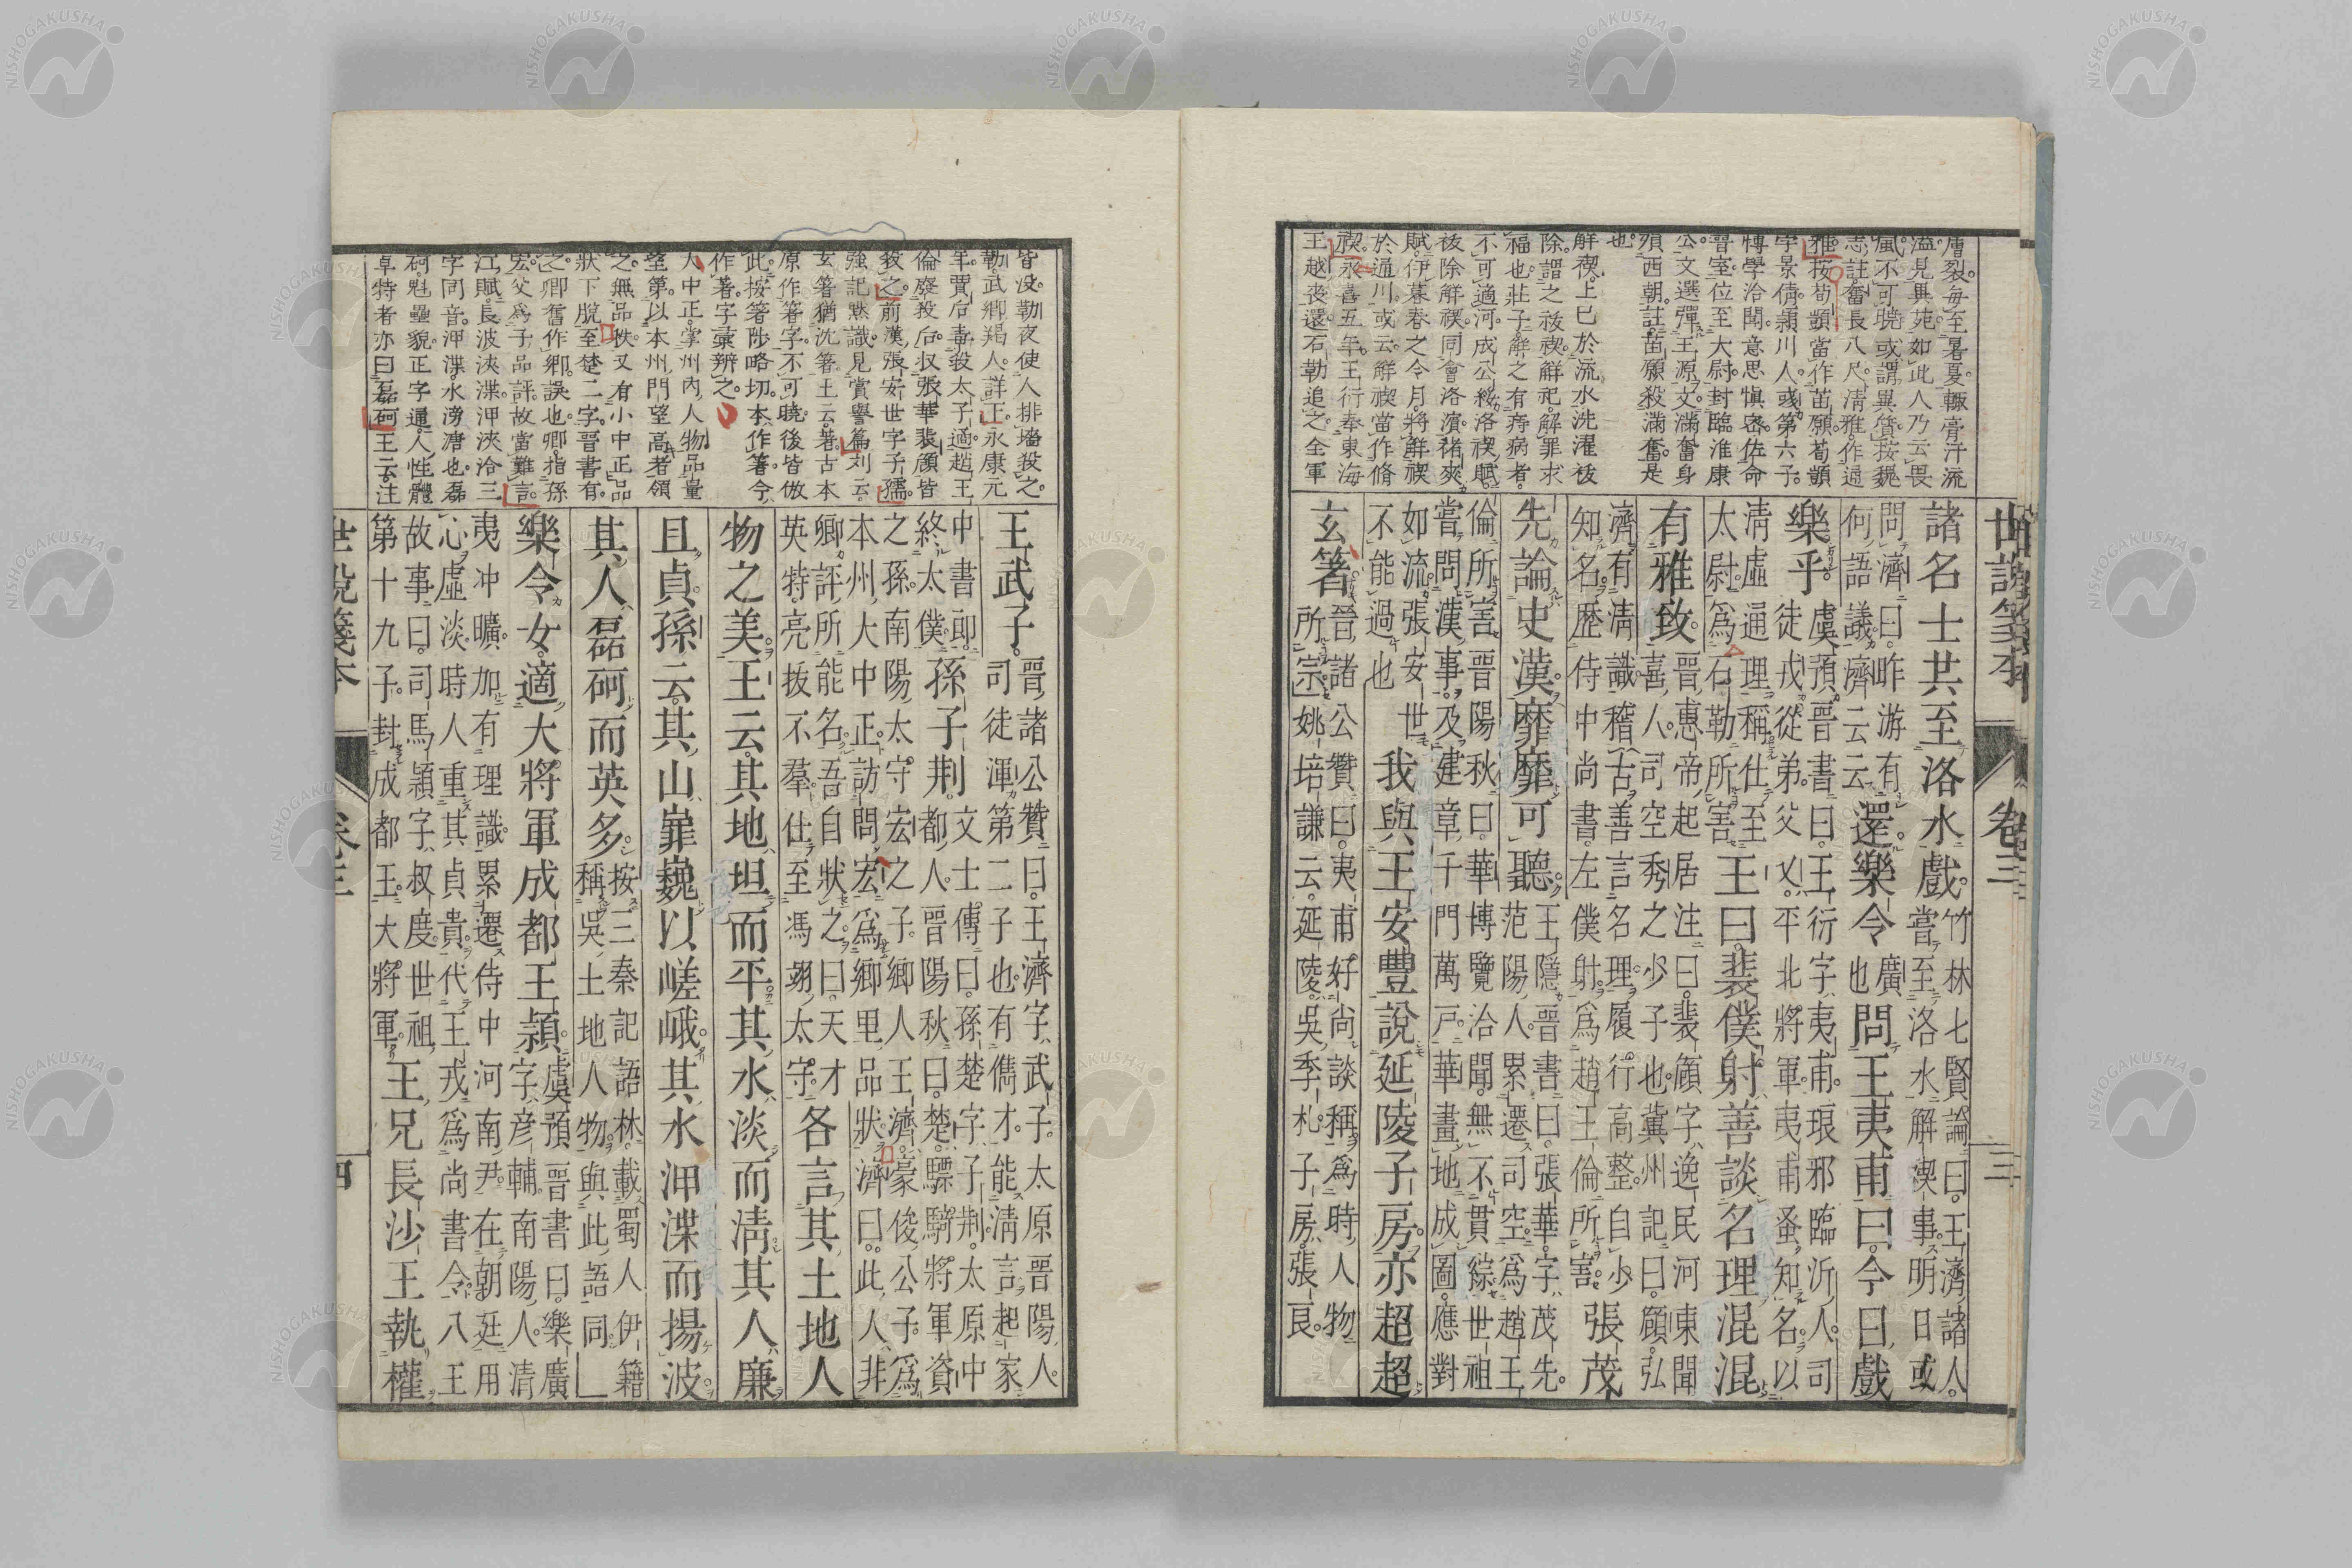 世說箋本 卷三 三
膚裂。毎至暑夏。輙膏汗流
溢見異苑。如此人乃云畏
風。不可曉。或謂異質。按魏
志註。奮長八尺。淸雅。作通
雅。按荀顗當作苗願。荀顗
字景倩。潁川人。彧第六子。
博學洽聞。意思愼密。佐命
晉室。位至大尉。封臨淮康
公。文選彈王源文。滿奮身
殞西朝。註。苗願殺滿奮。是
也
解禊。上巳於流水洗濯祓
除。謂之祓禊。解祀。解罪求
福也。莊子。解之有痔病者。
不可適河。成公綏洛禊賦。
祓除解禊。同會洛濱。褚爽
賦。伊暮春之令月。將解禊
於通川。或云。解禊當作脩
禊。永喜五年。王衍奉東海
王越喪還。石勒追之。全軍
諸名士共至洛水戲。竹林七賢論曰。王濟諸人。嘗至洛水解禊事。明日或
問濟曰。昨游有何語議。濟云云 還樂令廣也 問王夷甫曰。今日戲
樂乎。虞預晉書曰。王衍字夷甫。琅邪臨沂人。司徒戎從弟。父乂。平北將軍。夷甫蚤知名。以
淸虛通理稱。仕至太尉。爲石勒所害 王曰。裴僕射善談名理混混
有雅致。晉惠帝起居注曰。裴頠字逸民。河東聞喜人。司空秀之少子也。冀州記曰。頠弘
濟有淸識。稽古善言名理。履行高整。自少知名。歷侍中尚書左僕射。爲趙王倫所害。 張茂
先論史漢靡靡可聽。王隱晉書曰。張華字茂先。范陽人。累遷司空。爲趙王
倫所害 晉陽秋曰。華博覽洽聞。無不貫綜。世祖嘗問漢事。及建章千門萬戸。華畫地成圖。應對
如流。張安世不能過也 我與王安豐說延陵子房。亦超超
玄箸。晉諸公贊曰。夷甫好尚談稱。爲時人物所宗 姚培謙云。延陵。吳季札。子房。張良。
皆没。勒夜使人排墻殺之。
勒武鄉羯人。詳正永康元
年。賈后毒殺太子遹。趙王
倫廢殺后。収張華裴頠皆
殺之。前漢張安世字子孺。
強記默識。見賞譽篇。刘云。
玄箸猶沈箸。王云。著古本
原作箸字。不可曉。後皆倣
此。按箸陟略切。本作箸。今
作著字彙辨之。
大中正。掌州内人物品量
望第。以本州門望高者領
之。無品秩。又有小中正。品
狀下脱至楚二字。晉書有。
之。卿舊作鄉。誤也。卿指孫
宏。父爲子品評。故當難言。
江賦。長波浹渫。㳌浹洽三
字同音。㳌渫。水滂溏也。磊
砢魁壘貌。正字通。人性體
卓特者。亦曰磊砢。王云。注
王武子。晉諸公贊曰。王濟字武子。太原晉陽人。司徒渾第二子也。有儁才。能淸言。起家
中書郎。終太僕。 孫子荆。文士傳曰。孫楚字子荆。太原中都人。晉陽秋曰。楚驃騎將軍資
之孫。南陽太守宏之子。鄉人王濟。豪俊公子。爲本州大中正。訪問宏爲鄉里品狀。濟曰。此人非
卿評所能名。吾自狀之曰。天才英特。亮拔不羣。仕至馮翊太守。 各言其土地人
物之美。王云。其地坦而平。其水淡而淸。其人廉
且貞。孫云。其山嶵巍以嵯峨。其水㳌渫而揚波
其人磊砢而英多。按三秦記語林。載蜀人伊籍稱吳土地人物。與此語同
樂令女。適大將軍成都王穎。虞預晉書曰。樂廣字彦輔。南陽人。清
夷冲曠。加有理識。累遷侍中河南尹。在朝廷用心虛淡。時人重其貞貴。代王戎爲尚書令。八王
故事曰。司馬穎字叔度。世祖第十九子。封成都王。大將軍。 王兄長沙王執權
世說箋本 卷三 四